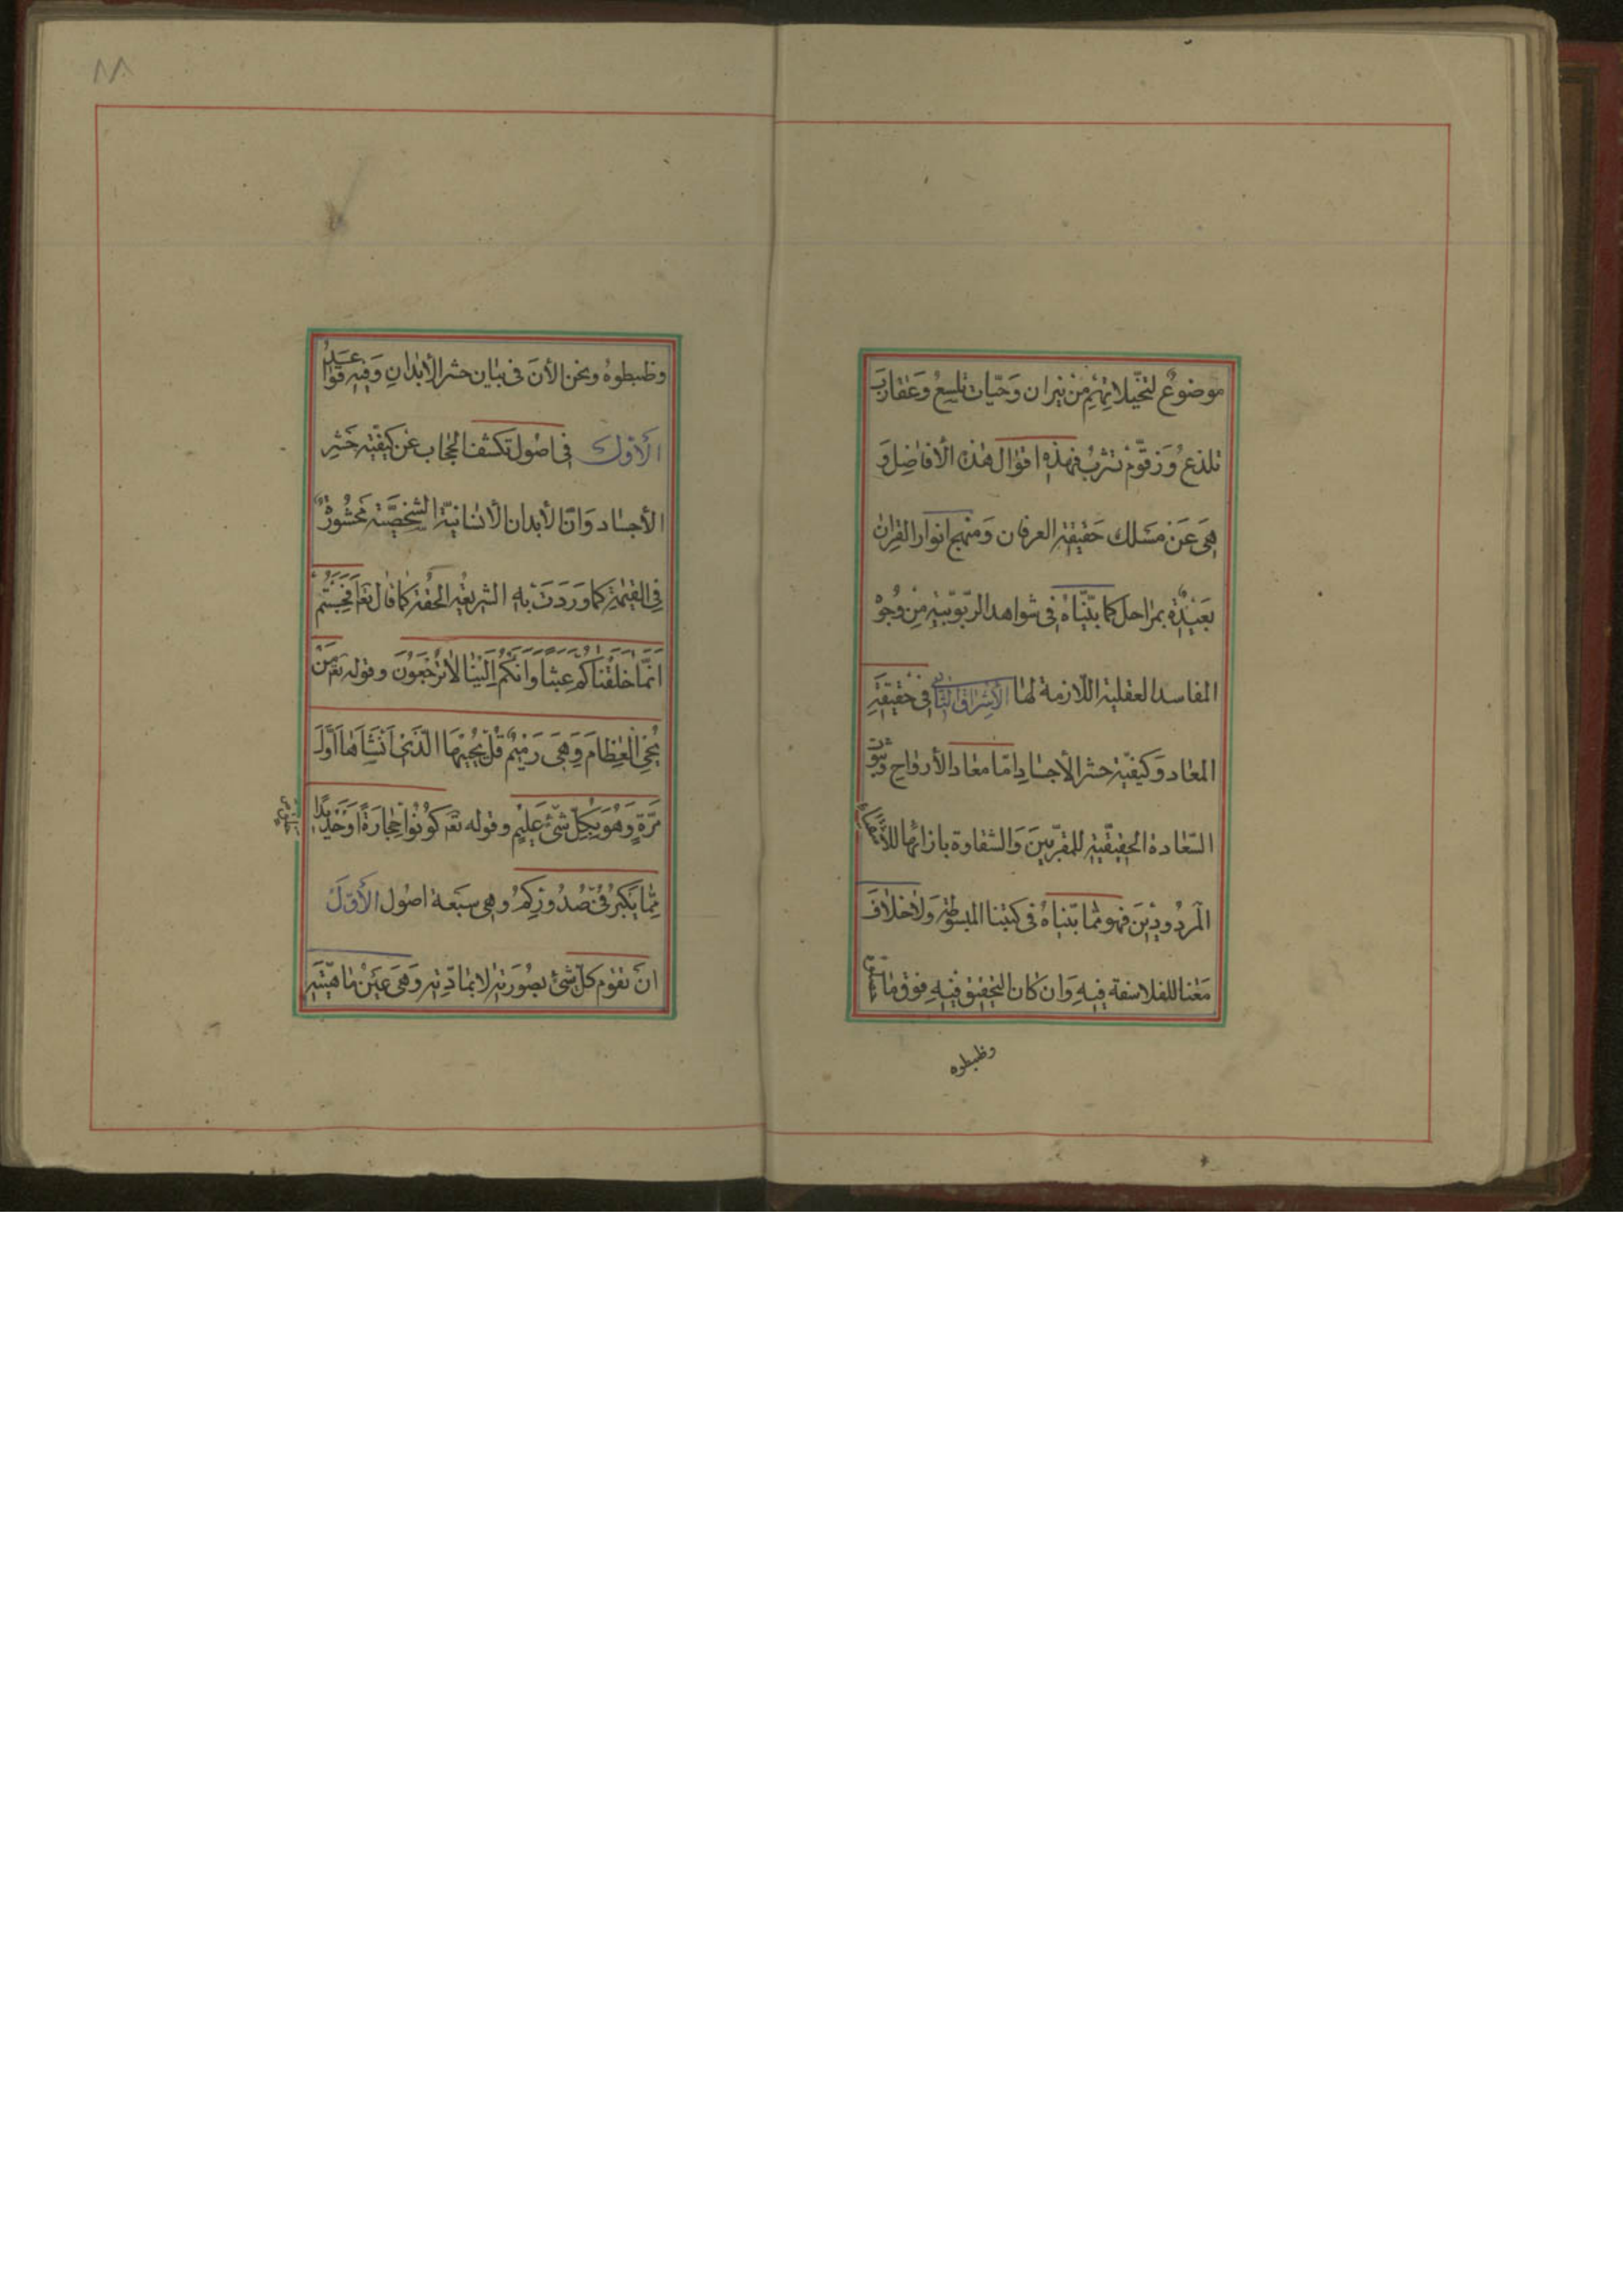 موضوعٌ لتخيّلاتِهِم مِن نيران وَحيّات تلسعُ وَعقاربَ
تلذعُ وَزقّوْمْ تشربُ فهٰذِهِ اقوٰال هٰذه الأفاضِل وَ
هِىَ عَنْ مَسْلك حَقيقةِ العرفان وَمنهج انوار القرانِ
بَعيْدةٌ بمراحل كما بيّنّاهُ فى شواهد الرّبوبيّةِ مِنْ وُجوْ
المفاسد العقلية اللّازمة لهٰا الأشراق الثّانى فى حقيقةِ
المعاد وَكيفيّةِ حشر الأجسٰادِ امّا معٰاد الأروٰاح وَثبوت
السّعٰادة الحقيقيّةِ للمقرّبيْنَ وَالشقاوة بازائهٰا للأشقياء
المَردُودِيْنَ فهو ممّا بيّنّاهُ فى كتبنا المبسُوطة وَلا خلٰافَ
مَعْنا للفلاسفة فيهِ وَان كٰان التحقيق فيهِ فوق مٰا
وظبطوه
٨٨
وظبطوهُ ونحن الأنَ فى بيٰان حشر الأبدٰانِ وَفيهِ قوٰاعدٌ
الَأوّل فى اصُول تكشف الحجٰاب عَنْ كيفيّةِ حَشْرِ
الأجسٰاد وَانّ الأبدان الأنسانيّة الشخصيّة مَحْشُورَةٌ
فِى القيٰمةِ كمٰا وَرَدَتْ بِهِ الشريعَةِ الحقّة كمٰا قٰال تعٰ افحسِبْتُم
انّمٰا خلقْنٰاكُم عبثًا وانّكُم اِلَيْنٰا لٰا تُرْجَعُوْنَ وقوله تعٰ مَنْ
يُحْىِ الْعِظٰامَ وَهِىَ رَمْيْمٌ قُلْ يُحْيِيْهَا الّذىْ اَنْشَأهٰا اَوَّلَ
مَرّةٍ وَهُوَ بِكلّ شَىْءٍ عَلِيْمٍ وقوله تعٰ كوْنُوْا حِجٰارَةً اَوْ حَدِيْدًا
مِمّا يَكْبرُ فى صُدُورِكمْ وهى سَبْعة اصُول الَأوّلَ
انّ تقوّم كلّ شىْءٍ بصُورَتِهِ لا بمٰادّتِهِ وَهىَ عَيْنْ مٰاهيّتِهِ